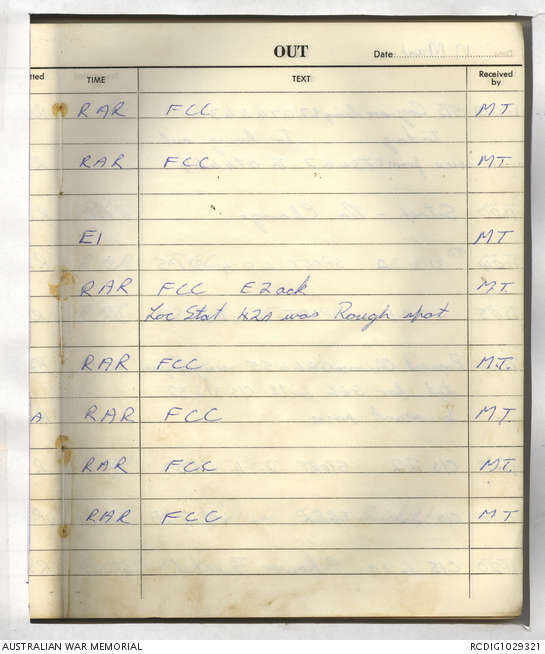 OUT Date
TIME TEXT Received by
RAR FCC MT.
RAR FCC MT.
E1 MT
RAR FCC E2 ack MT.
Loc Stat 42A was Rough spot
RAR FCC MT.
A RAR FCC MT.
RAR FCC MT.
RAR FCC MT
AUSTRALIAN WAR MEMORIAL RCDIG1029321